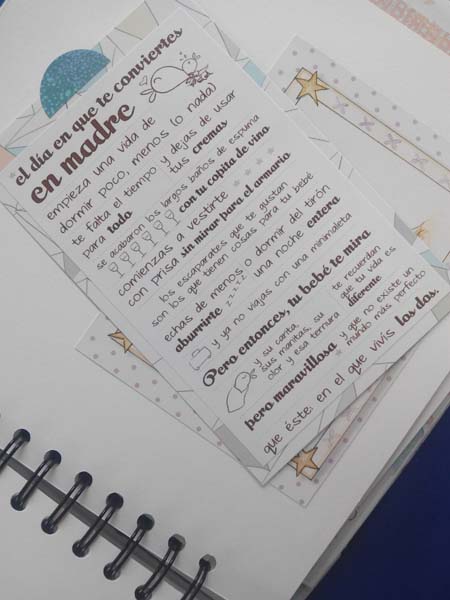 el día en que te conviertes
en madre
empieza una vida de
dormir poco, menos (o nada)
te falta el tiempo y dejas de usar
para todo tus cremas
se acabaron los largos baños de espuma
con tu copita de vino
comienzas a vestirte
con prisa sin mirar para el armario
los escaparates que te gustan
son los que tienen cosas para tu bebé
echas de menos dormir del tirón
aburrirte zzzz una noche entera
y ya no viajas con una minimaleta
Pero entonces, tu bebé te mira
y su carita, te recuerdan
sus manitas, su que tu vida es
olor y esa ternura diferente
pero maravillosa y que no existe un
mundo más perfecto
que éste: en el que vivís los dos.